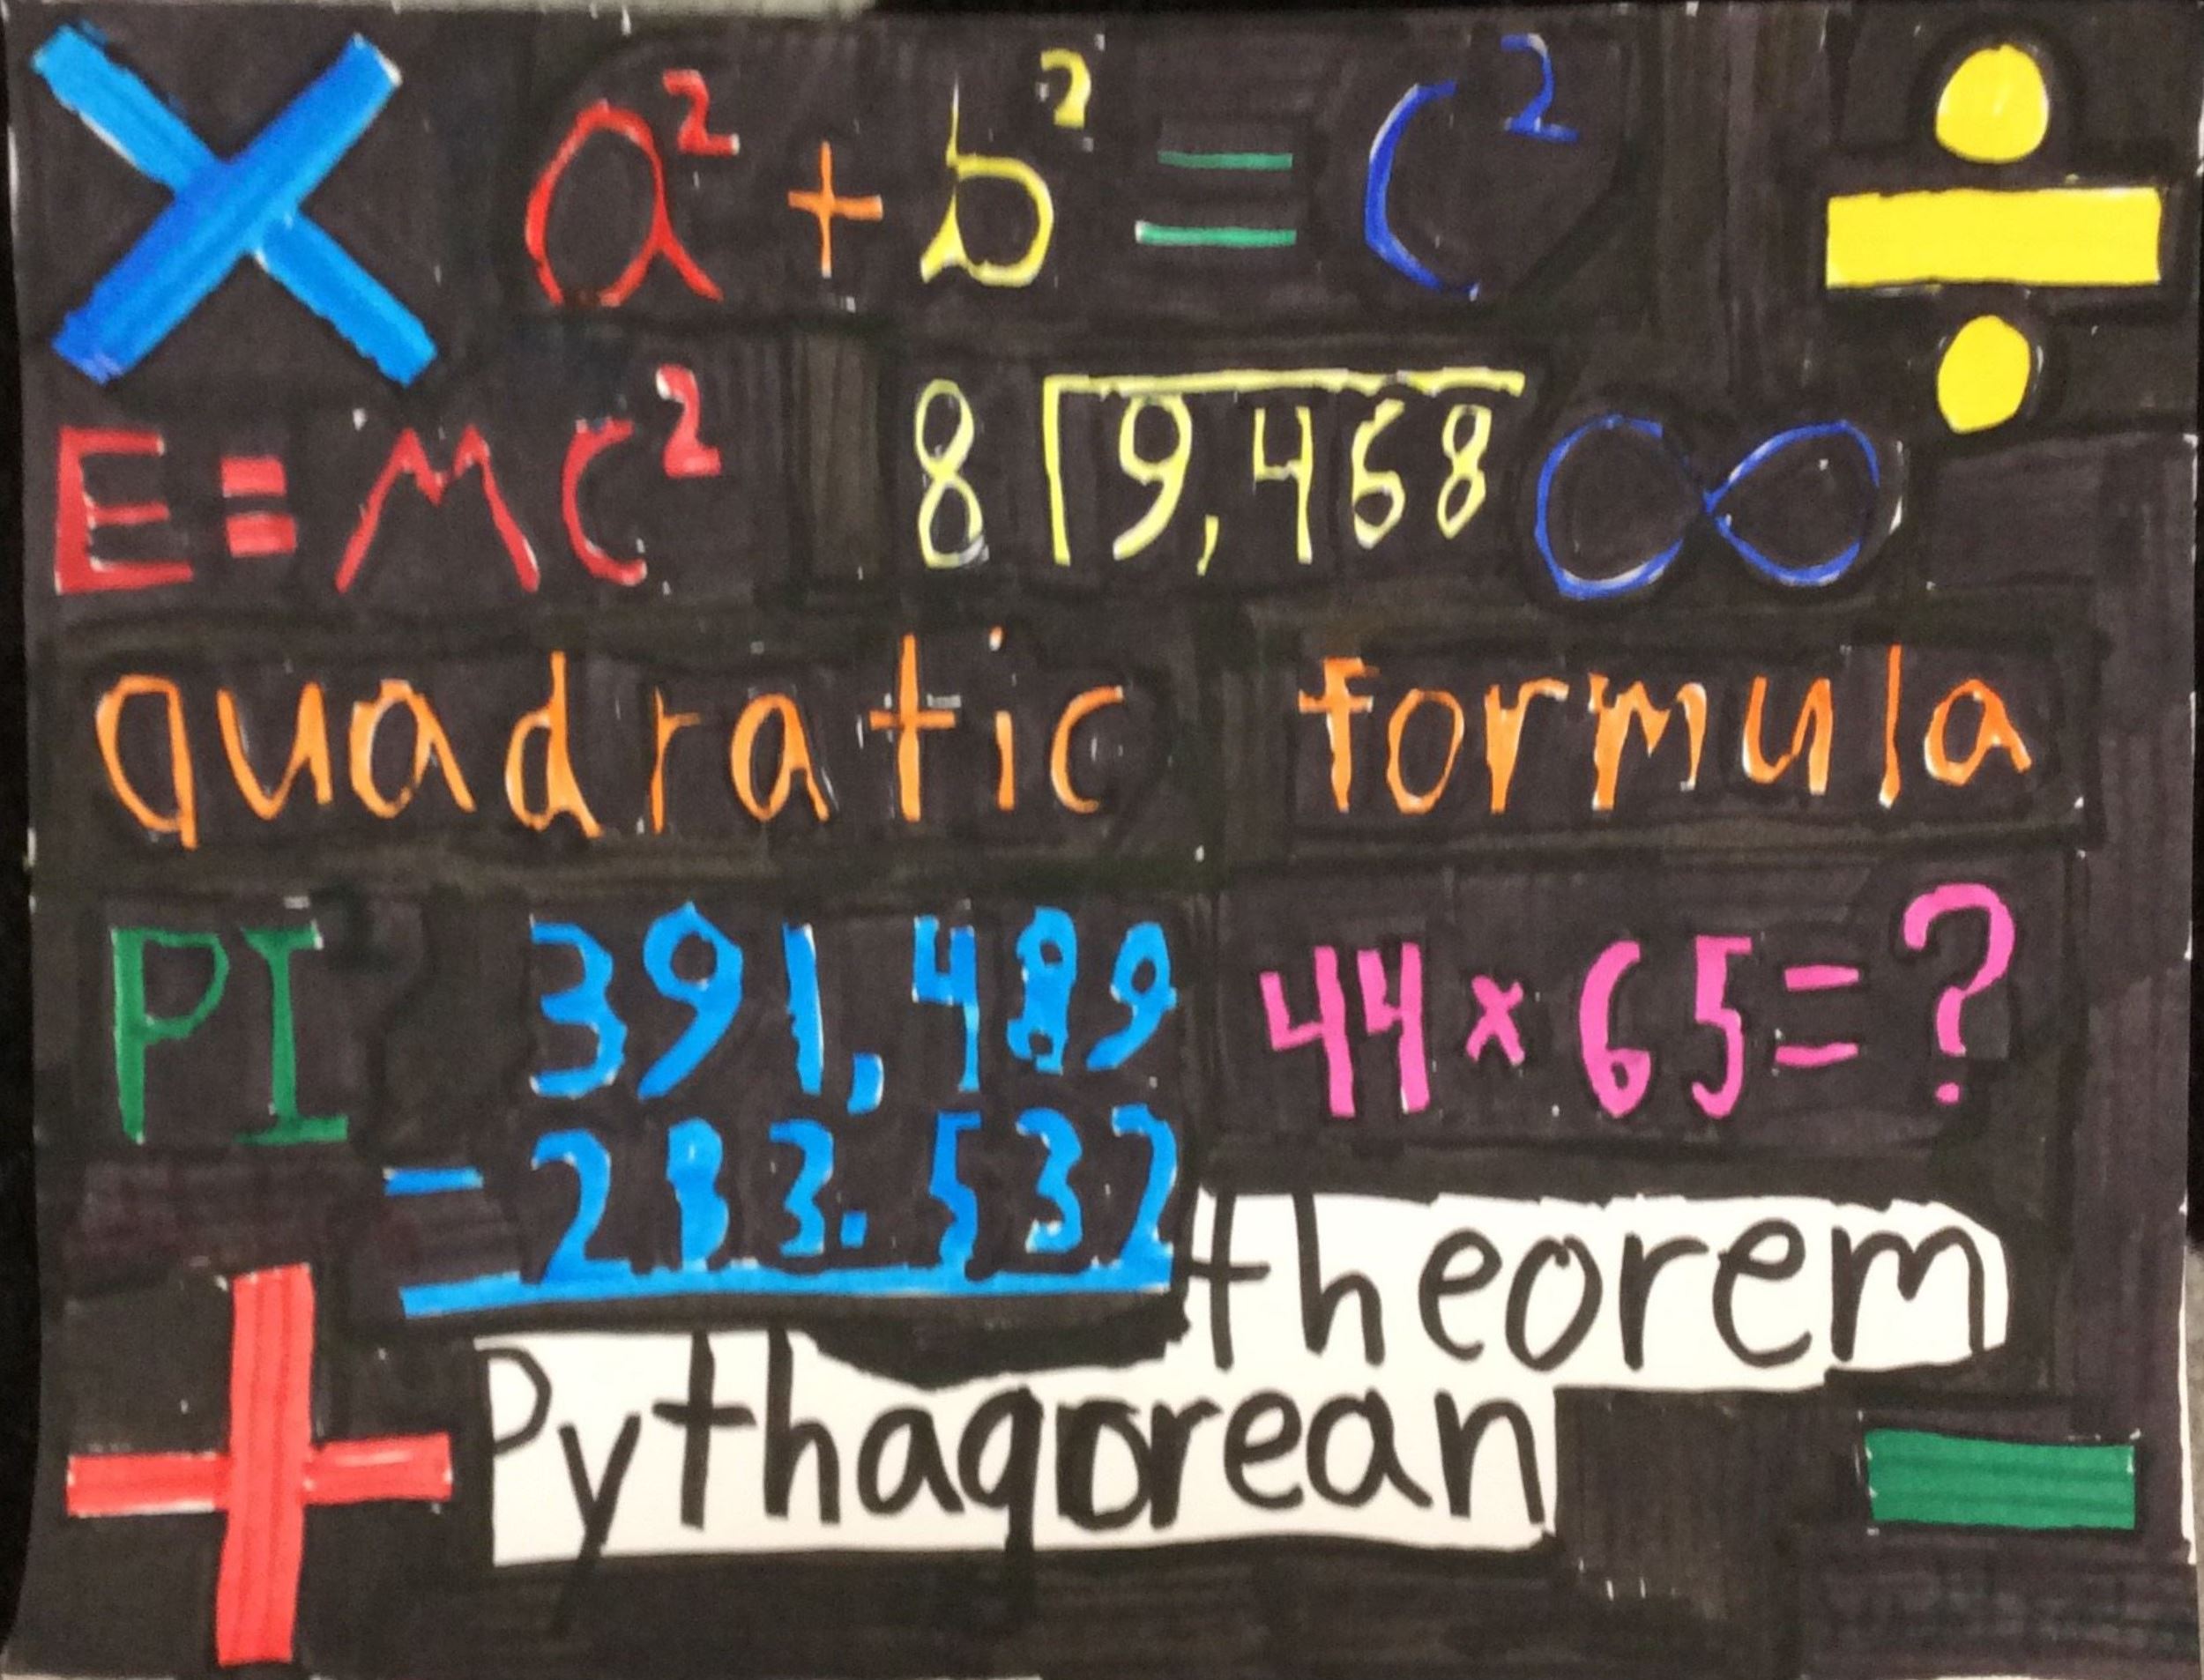 ×
a² + b² = c²
÷
E = mc²
8 ⟌ 9,468
∞
quadratic formula
PI
391,489
- 283.532
44 × 65 = ?
theorem
Pythagorean
+
−